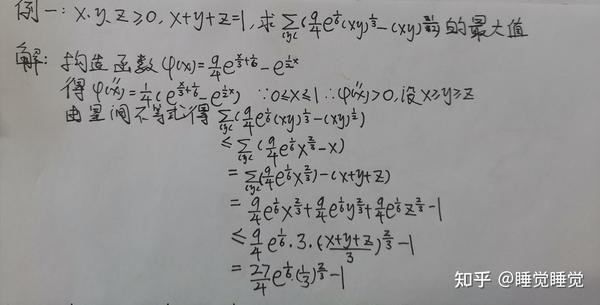 例一: x、y、z≥0, x+y+z=1, 求 ∑_{cyc}(9/4 e^{1/6}(xy)^{1/3} - (xy)^{1/2}) 的最大值
解: 构造函数 φ(x)=9/4 e^{x/3+1/6} - e^{1/2 x}
得 φ''(x)=1/4(e^{x/3+1/6} - e^{1/2 x}) ∵0≤x≤1 ∴φ''(x)>0, 设x≥y≥z
由 不等式得 ∑_{cyc}(9/4 e^{1/6}(xy)^{1/3} - (xy)^{1/2})
≤ ∑_{cyc}(9/4 e^{1/6} x^{2/3} - x)
= ∑_{cyc}(9/4 e^{1/6} x^{2/3}) - (x+y+z)
= 9/4 e^{1/6} x^{2/3} + 9/4 e^{1/6} y^{2/3} + 9/4 e^{1/6} z^{2/3} - 1
≤ 9/4 e^{1/6}·3·((x+y+z)/3)^{2/3} - 1
= 27/4 e^{1/6}·(1/3)^{2/3} - 1
知乎 @睡觉睡觉